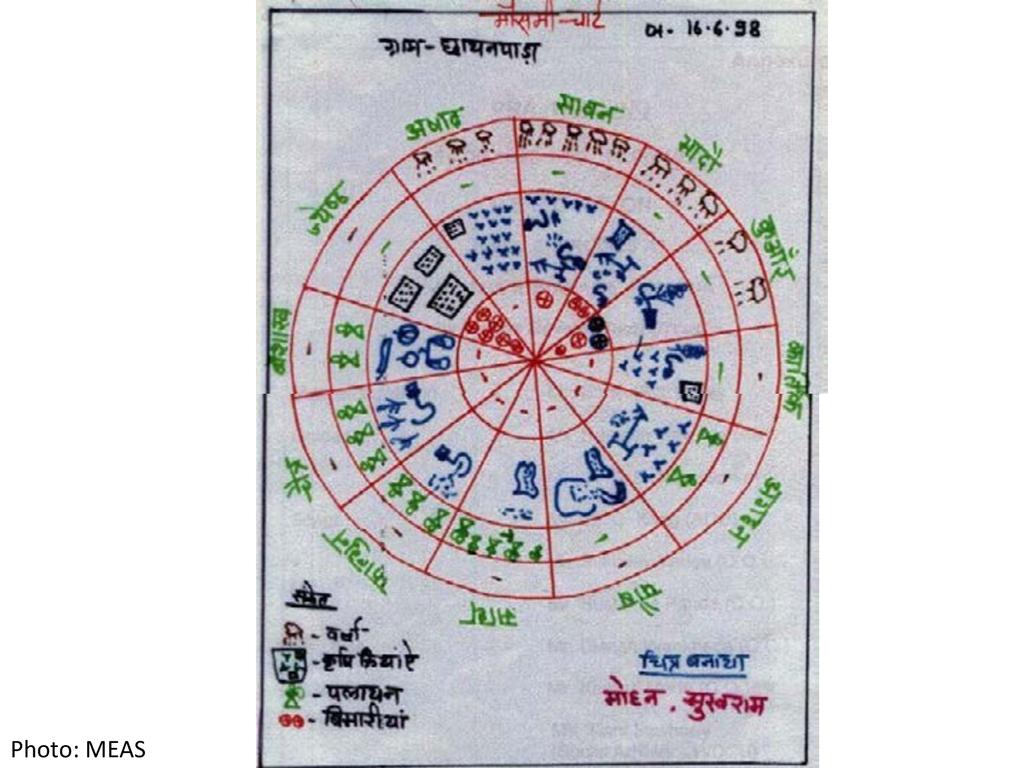 मौसमी-चार्ट
दा- 16.6.98
ग्राम-छायनपाड़ा
सावन
अषाढ़
भादौ
ज्येष्ठ
कुमॉर
बैशाख
कार्तिक
चैत्र
अगहन
फाल्गुन
पौष
माघ
संकेत
- वर्षा
- कृषि क्रियाऐं
- पलायन
- बिमारीयां
चित्र बनाया
मोहन, सुखराम
Photo: MEAS